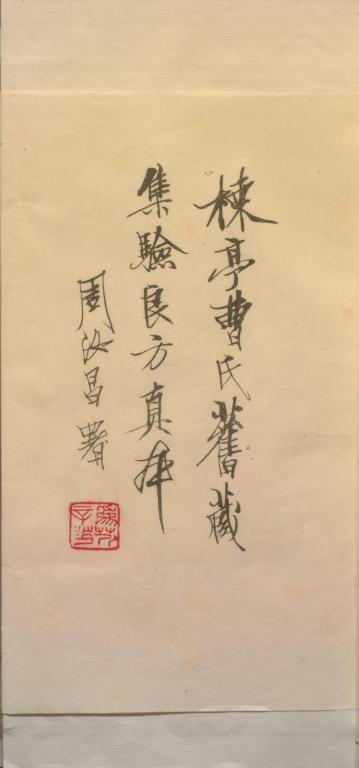 楝亭曹氏舊藏
集驗良方真本
周汝昌署